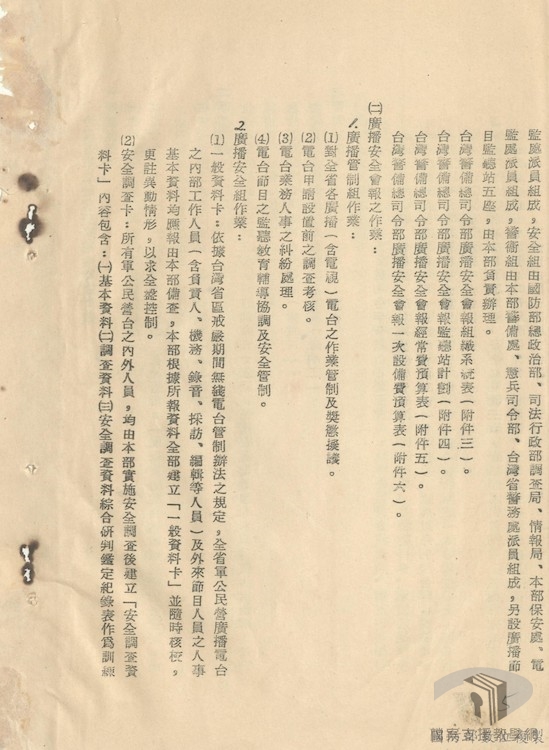 監處派員組成，安全組由國防部總政治部、司法行政部調查局、情報局、本部保安處、電
監處派員組成，警衛組由本部警備處、憲兵司令部、台灣省警務處派員組成，另設廣播節
目監聽站五座，由本部負責辦理。
台灣警備總司令部廣播安全會報組織系統表（附件三）。
台灣警備總司令部廣播安全會報監聽站計劃（附件四）。
台灣警備總司令部廣播安全會報經常費預算表（附件五）。
台灣警備總司令部廣播安全會報一次設備費預算表（附件六）。
㈡廣播安全會報之作業：
1.廣播管制組作業：
⑴對全省各廣播（含電視）電台之作業管制及獎懲擬議。
⑵電台申請設置前之調查考核。
⑶電台業務人事之糾紛處理。
⑷電台節目之監聽教育輔導協調及安全管制。
2.廣播安全組作業：
⑴一般資料卡：依據台灣省區戒嚴期間無綫電台管制辦法之規定，全省軍公民營廣播電台
之內部工作人員（含負責人、機務、錄音、採訪、編輯等人員）及外來節目人員之人事
基本資料均匯報由本部備查，本部根據所報資料全部建立「一般資料卡」並隨時核校，
更註異動情形，以求全盤控制。
⑵安全調查卡：所有軍公民營台之內外人員，均由本部實施安全調查後建立「安全調查資
料卡」內容包含：㈠基本資料㈡調查資料㈢安全調查資料綜合研判鑑定紀錄表作爲訓練